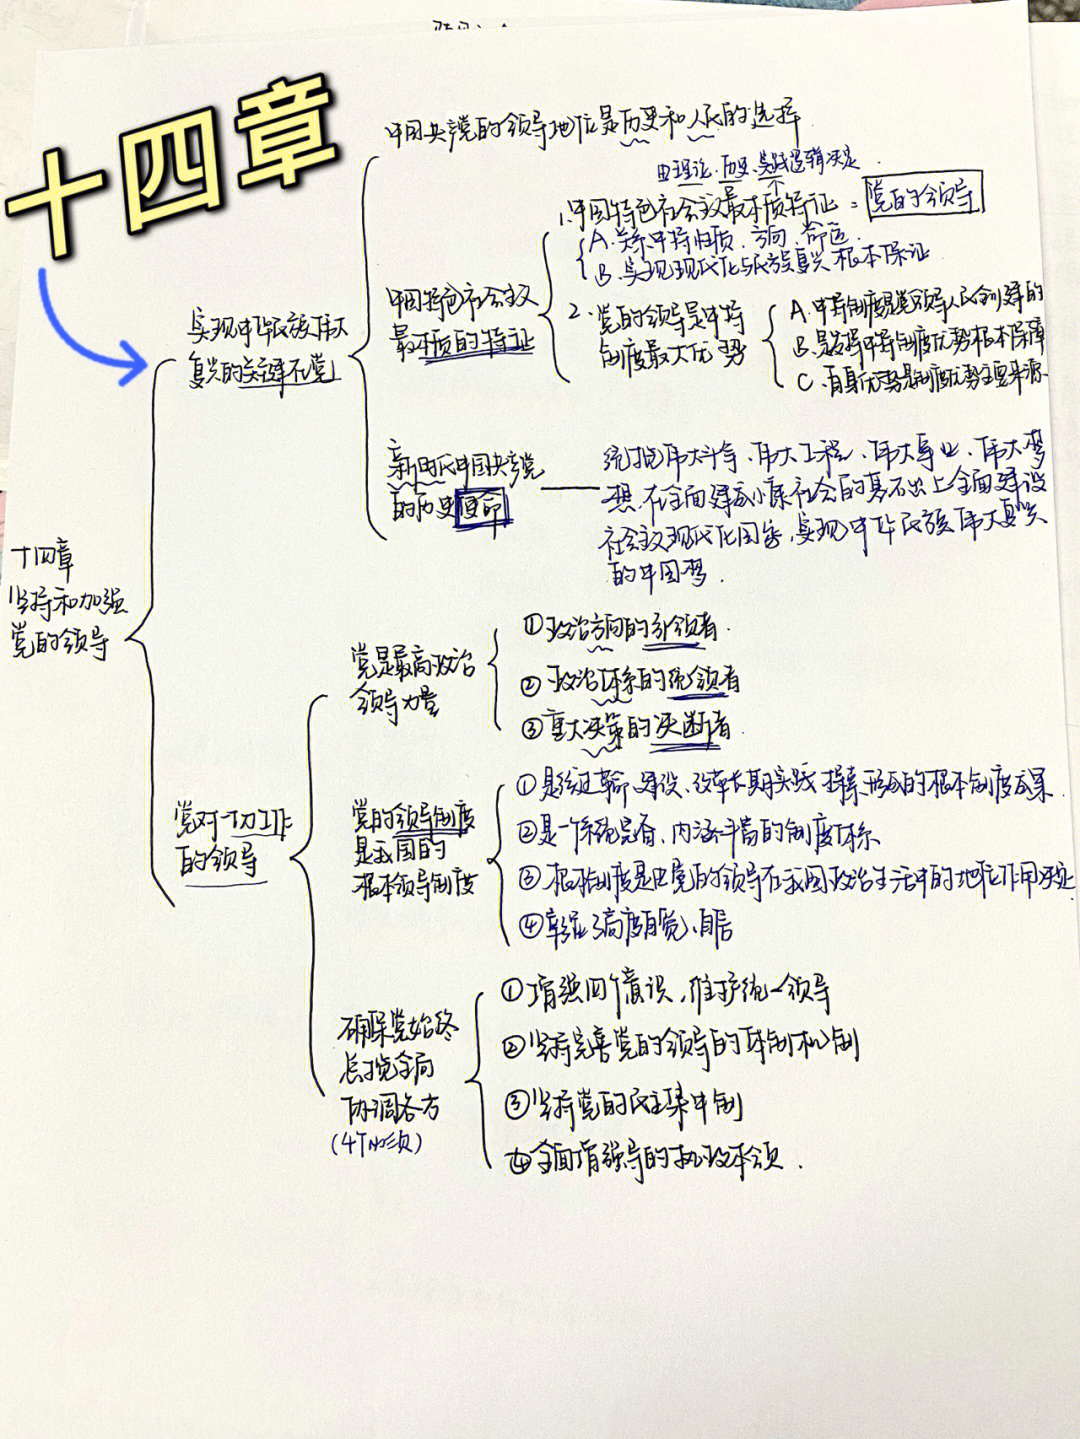 十四章
中国共产党的领导地位是历史和人民的选择
由理论、历史、实践逻辑决定.
1.中国特色社会主义最本质特征=党的领导
A.关系中特性质、方向、命运
B.实现现代化与民族复兴根本保证
实现中华民族伟大
复兴的关键在党
中国特色社会主义
最本质的特征
2.党的领导是中特
制度最大优势
A.中特制度是党领导人民创建的
B.是发挥中特制度优势根本保障
C.自身优势是制度优势主要来源
新时代中国共产党
的历史使命
统揽伟大斗争、伟大工程、伟大事业、伟大梦
想,在全面建成小康社会的基石出上全面建设
社会主义现代化国家,实现中华民族伟大复兴
的中国梦.
十四章
坚持和加强
党的领导
党是最高政治
领导力量
①政治方向的引领者.
②政治体系的统领者
③重大决策的决断者.
党对一切工作
的领导
党的领导制度
是我国的
根本领导制度
①是经过革命、建设、改革长期实践探索形成的根本制度成果.
②是一个系统完备、内涵丰富的制度体系
③根本制度是由党的领导在我国政治生活中的地位作用决定
④彰显了高度自觉、自信
确保党始终
总揽全局
协调各方
(4个必须)
①增强四个意识,维护统一领导
②坚持完善党的领导的体制机制
③坚持党的民主集中制
④全面增强导的执政本领.